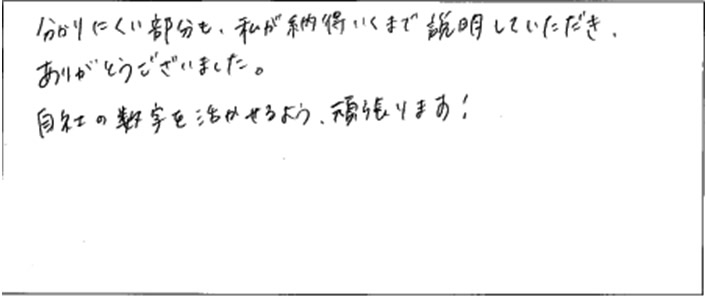 分かりにくい部分も、私が納得いくまで説明していただき、
ありがとうございました。
自社の数字を活かせるよう、頑張ります!